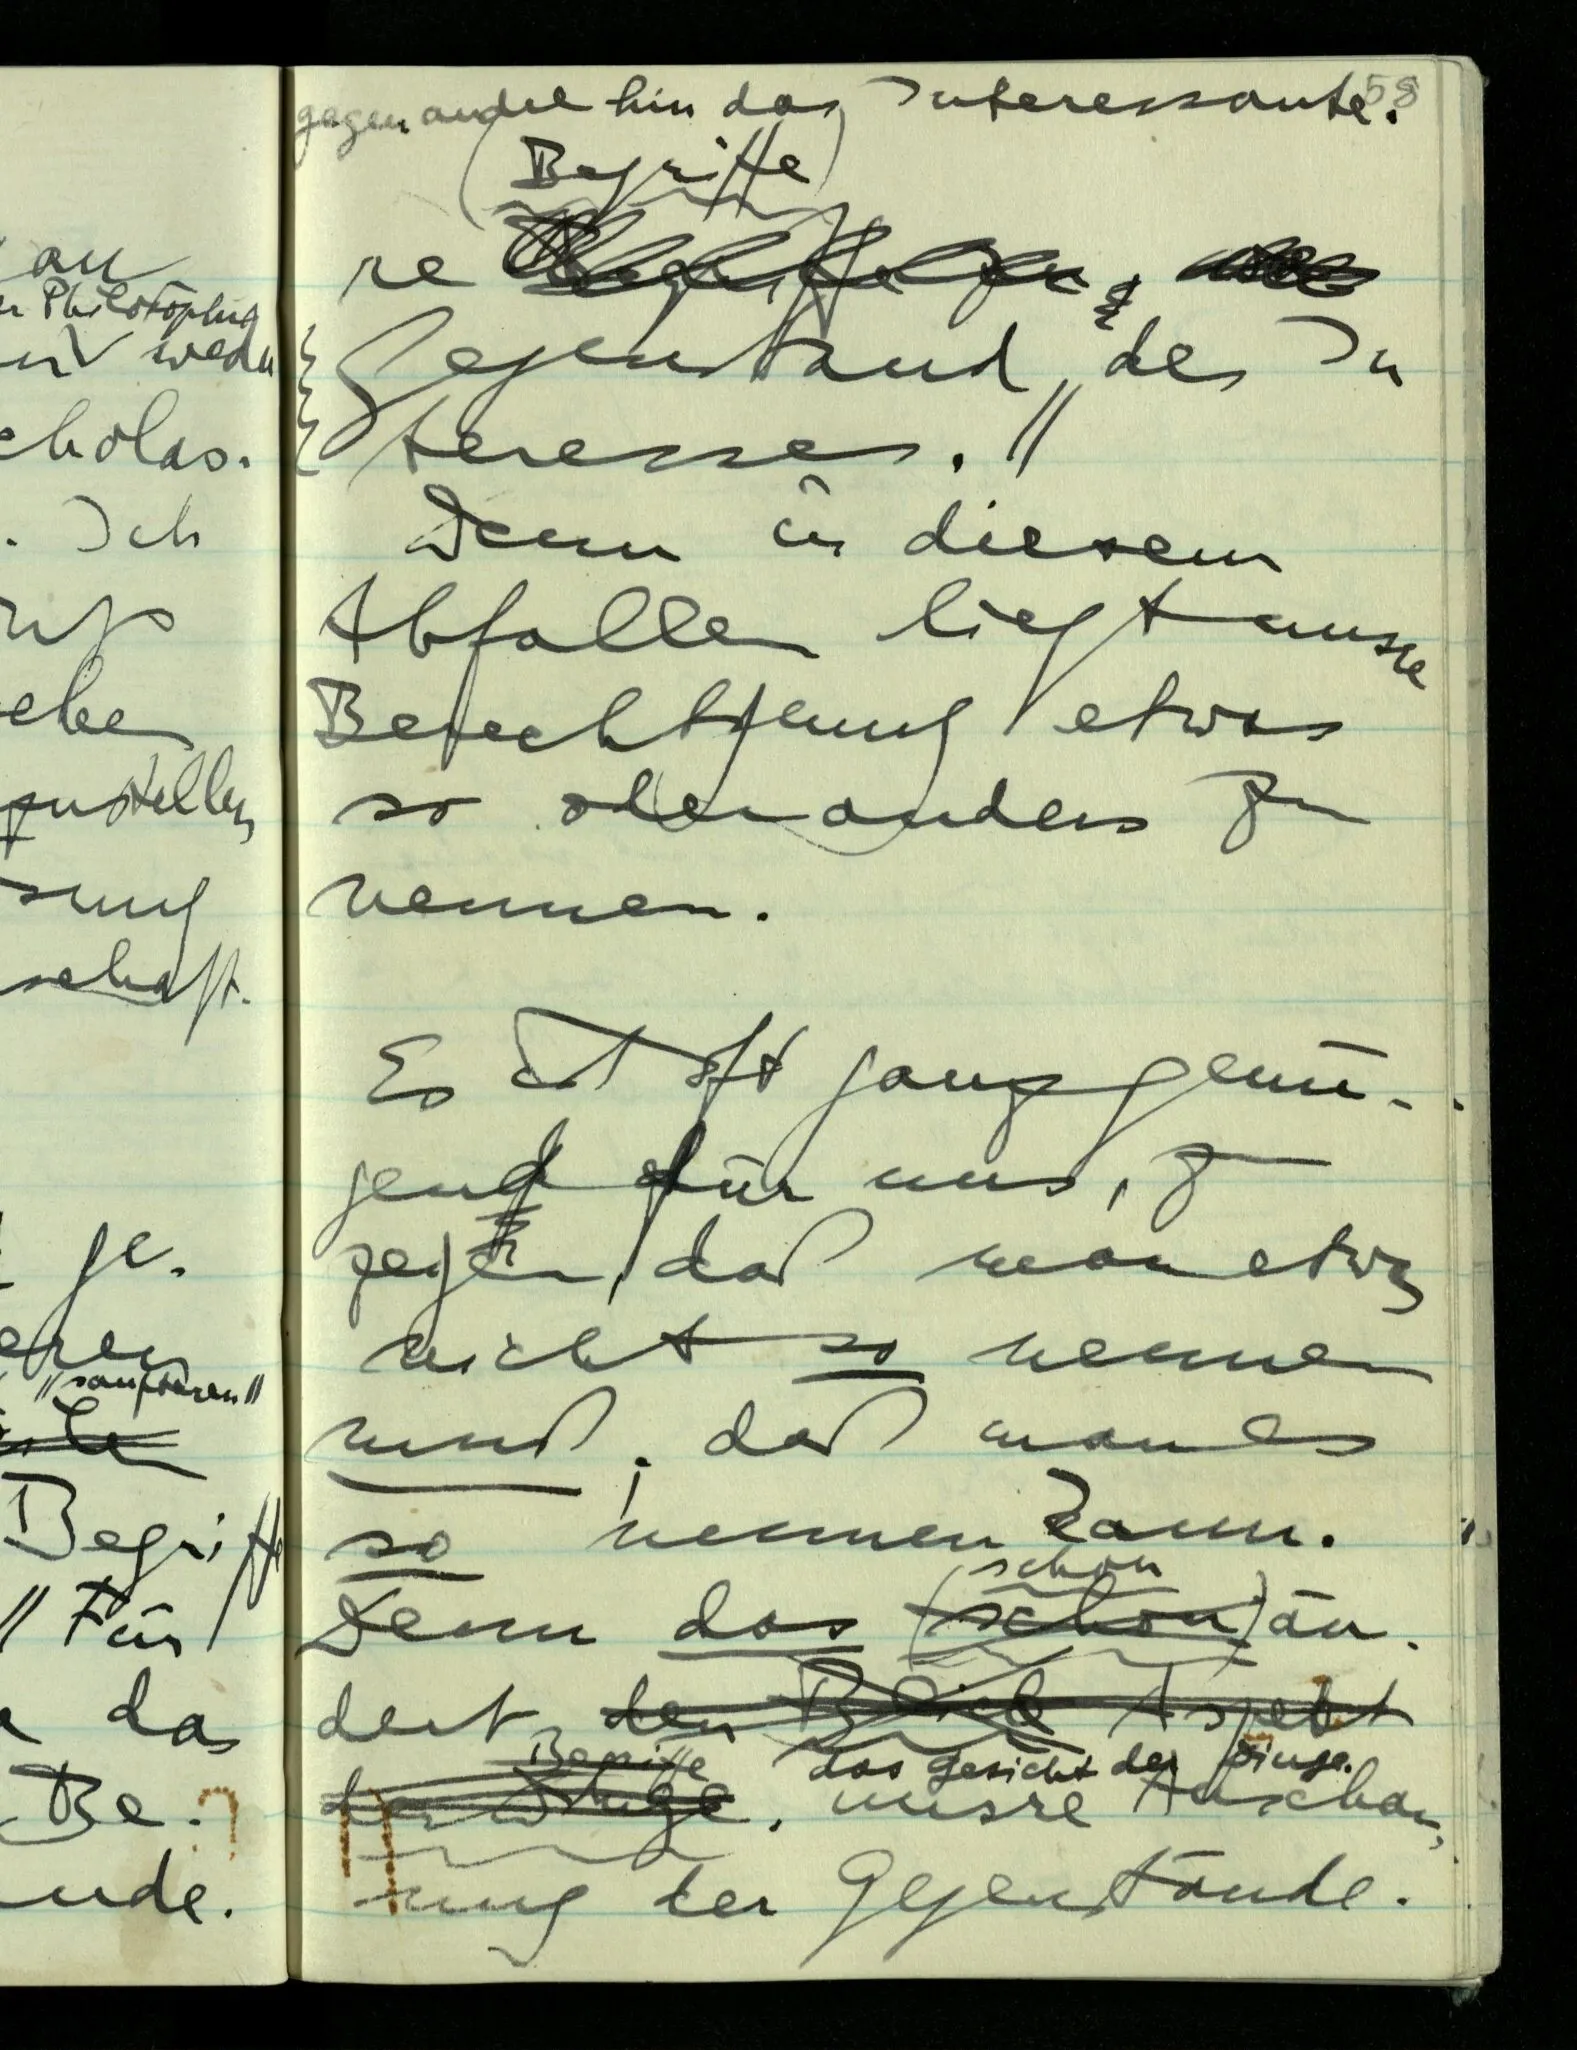 an
r Philosophie
weder
cholas.
. Ich
eben
zustellen,
sung
schaft.
je.
eren
"sanfteren"
Begriffe
" Für
das
Be-
unde.
58
gegen andre hin das Interessante.
(Begriffe)
re
Gegenstand des In
teresses."
Denn in diesem
Abfallen liegt unsre
Berechtigung etwas
so oder anders zu
nennen.
Es ist oft ganz genü-
gend für uns, zu
zeigen, daß man etwas
nicht so nennen
muß; daß man es
so nennen kann.
schon
Denn das (schon) än-
dert den Blick Aspekt
Begriffe das Gesicht der Dinge.
der Dinge. unsre Anschau-
ung der Gegenstände.